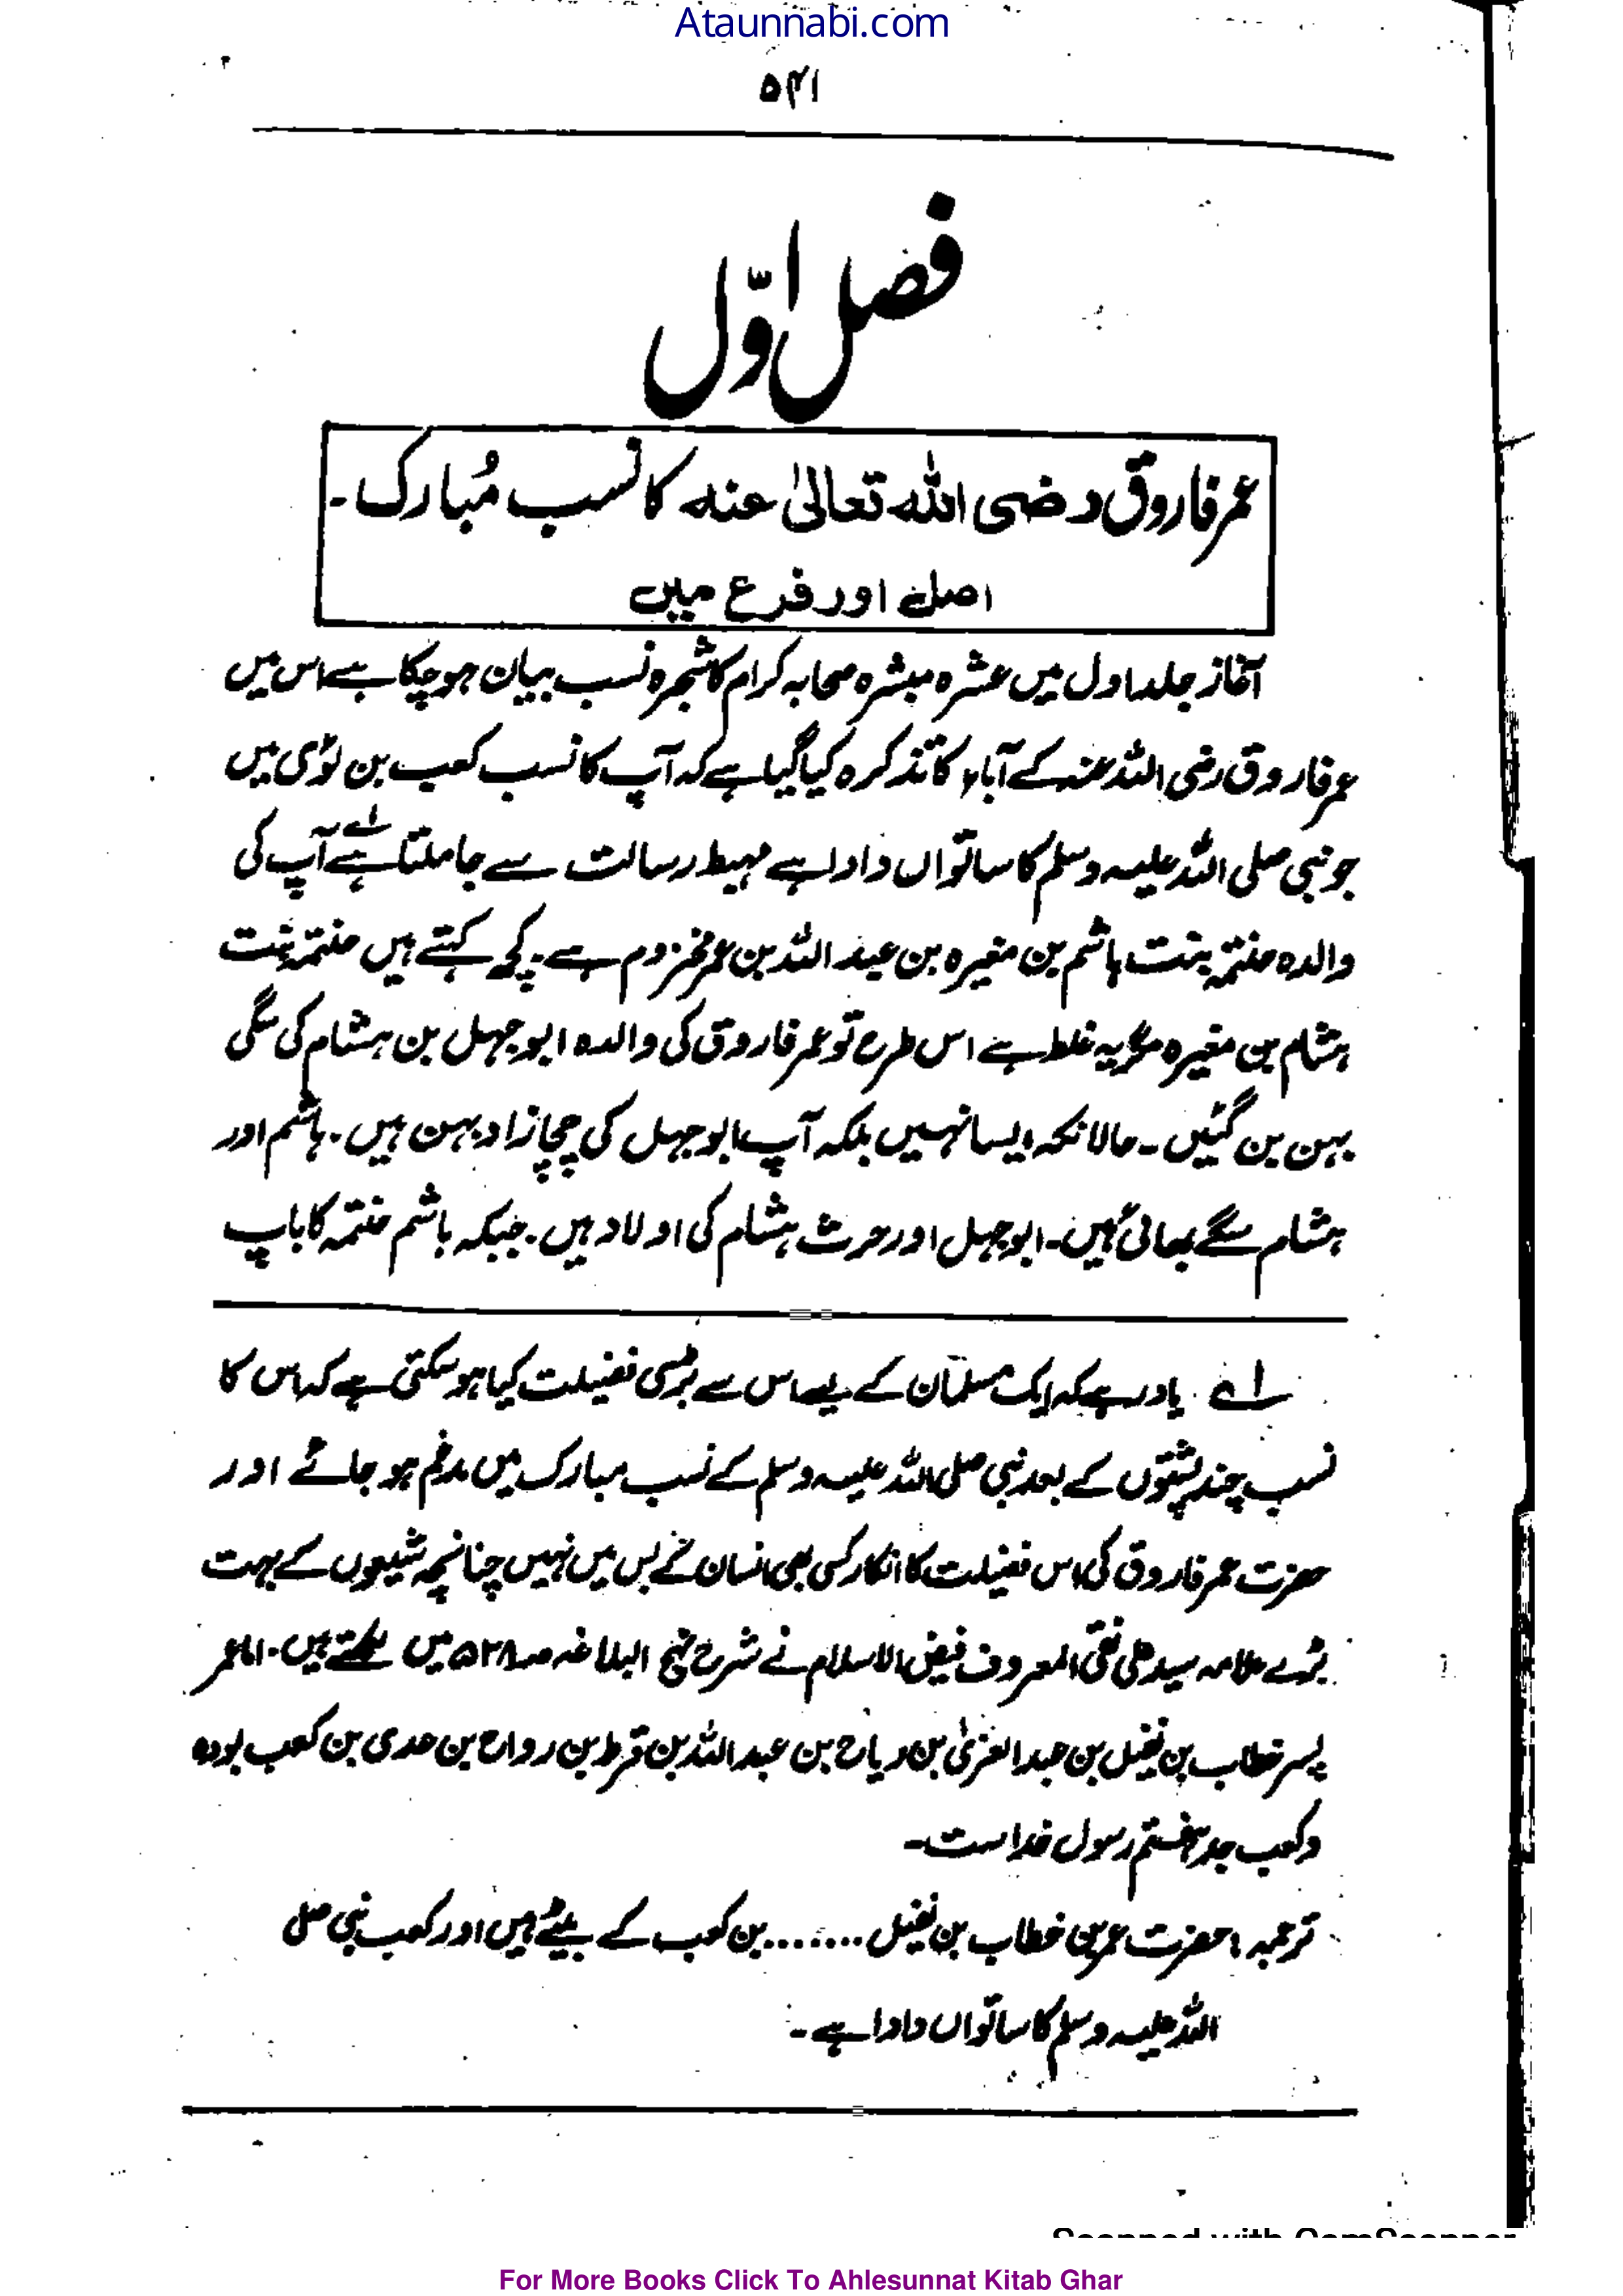 Ataunnabi.com
۵۴۱
فصل اوّل
عمر فاروق رضی اللہ تعالیٰ عنہ کا نسب مُبارک۔
اصل اور فرع میں
آغاز جلد اول میں عشرہ مبشرہ صحابہ کرام کا شجرہ نسب بیان ہو چکا ہے اس میں
عمر فاروق رضی اللہ عنہ کے آباء کا تذکرہ کیا گیا ہے کہ آپ کا نسب کعب بن لؤی میں
جو نبی صلی اللہ علیہ وسلم کا ساتواں دادا ہے مہبط رسالت سے جا ملتا ہے لہ آپ کی
والدہ حنتمہ بنت ہاشم بن مغیرہ بن عبد اللہ بن عمر مخزوم ہے۔ کچھ کہتے ہیں حنتمہ بنت
ہشام بن مغیرہ مگر یہ غلط ہے اس طرح تو عمر فاروق کی والدہ ابو جہل بن ہشام کی سگی
بہن بن گئیں۔ حالانکہ ایسا نہیں بلکہ آپ ابو جہل کی چچا زاد بہن ہیں۔ ہاشم اور
ہشام سگے بھائی ہیں۔ ابو جہل اور حرث ہشام کی اولاد ہیں۔ جبکہ ہاشم حنتمہ کا باپ
لہ یاد رہے کہ ایک مسلمان کے لیے اس سے بڑی فضیلت کیا ہو سکتی ہے کہ اس کا
نسب چند پشتوں کے بعد نبی صلی اللہ علیہ وسلم کے نسب مبارک میں مدغم ہو جائے اور
حضرت عمر فاروق کی اس فضیلت کا انکار کسی بھی انسان کے بس میں نہیں چنانچہ شیعوں کے بہت
بڑے علامہ سید علی نقی المعروف فیض الاسلام نے شرح نہج البلاغہ صہ ۵۲۸ میں لکھتے ہیں۔ اما عمر
پسر خطاب بن نفیل بن عبد العزیٰ بن ریاح بن عبد اللہ بن قرط بن رواح بن عدی بن کعب بودہ
وکعب جد ہفتم رسول خدا ست۔
ترجمہ: حضرت عمر بن خطاب بن نفیل ....... بن کعب کے بیٹے ہیں اور کعب نبی صلی
اللہ علیہ وسلم کا ساتواں دادا ہے۔
Scanned with CamScanner
For More Books Click To Ahlesunnat Kitab Ghar